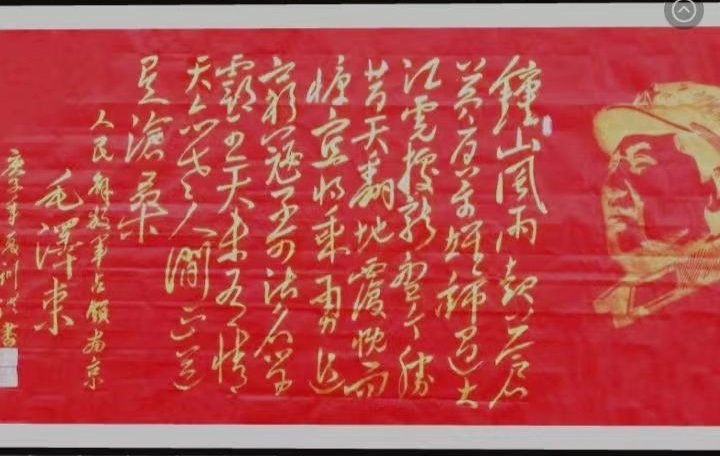 鐘山風雨起蒼
黃百萬雄師過大
江虎踞龍盤今勝
昔天翻地覆慨而
慷宜將剩勇追
窮寇不可沽名學
霸王天若有情
天亦老人間正道
是滄桑
人民解放軍占領南京
毛澤東
庚子年
書